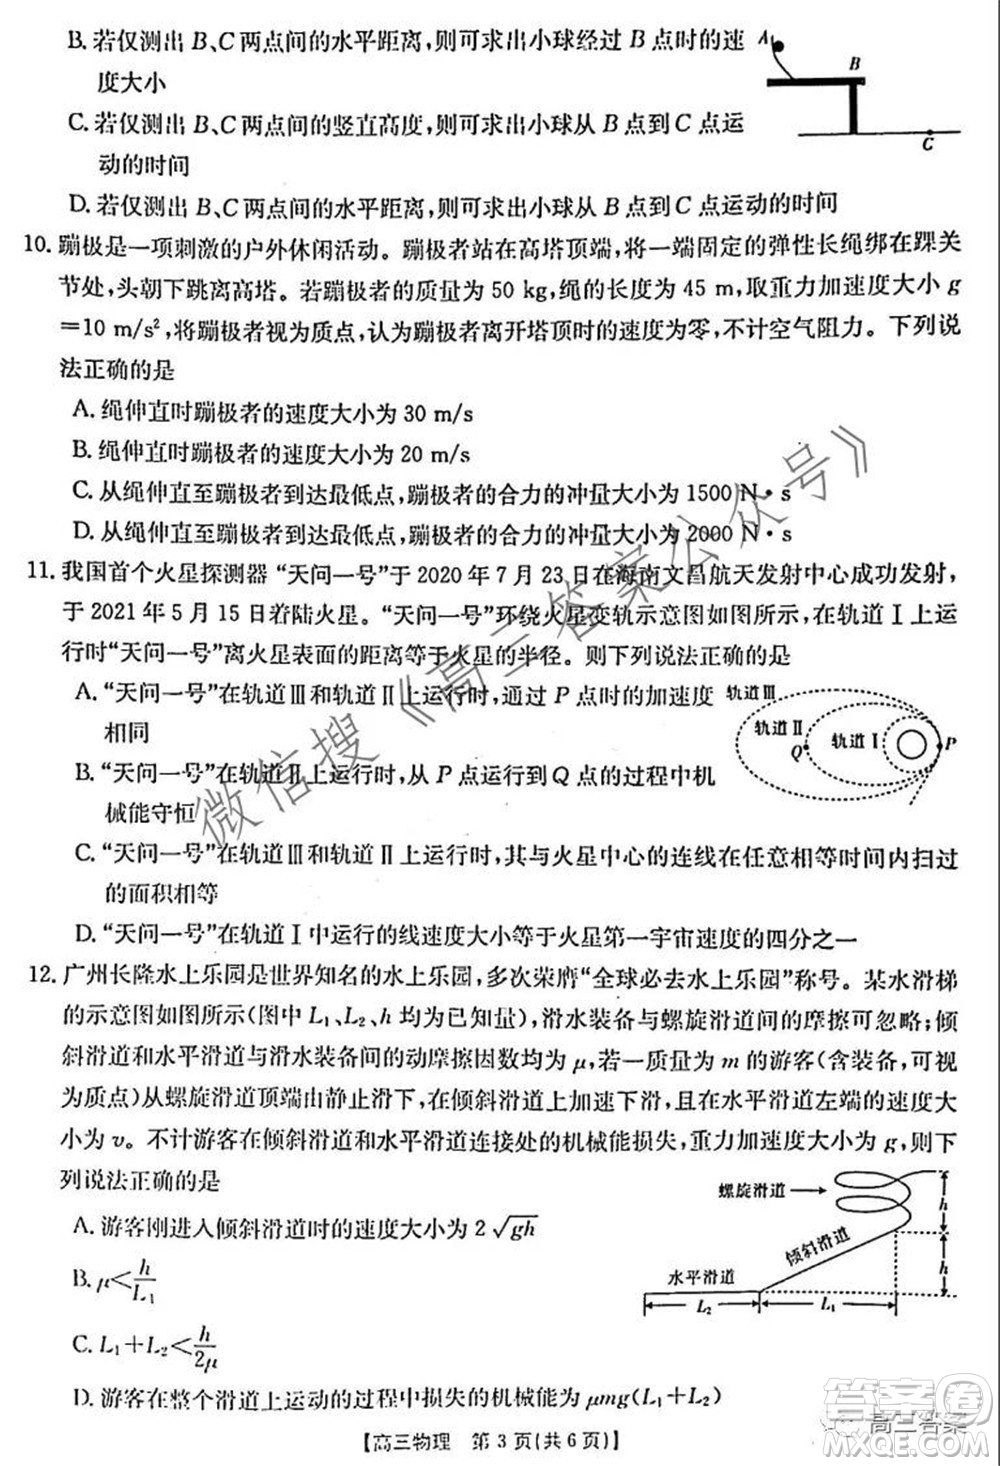 B. 若仅测出 B、C 两点间的水平距离,则可求出小球经过 B 点时的速
度大小
C. 若仅测出 B、C 两点间的竖直高度,可求出小球从 B 点到 C 点运
动的时间
D. 若仅测出 B、C 两点间的水平距离,则可求出小球从 B 点到 C 点运动的时间
A
B
C
10. 蹦极是一项刺激的户外休闲活动。蹦极者站在高塔顶端,将一端固定的弹性长绳绑在踝关
节处,头朝下跳离高塔。若蹦极者的质量为 50 kg,绳的长度为 45 m,取重力加速度大小 g
=10 m/s²,将蹦极者视为质点,认为蹦极者离开塔顶时的速度为零,不计空气阻力。下列说
法正确的是
A. 绳伸直时蹦极者的速度大小为 30 m/s
B. 绳伸直时蹦极者的速度大小为 20 m/s
C. 从绳伸直至蹦极者到达最低点,蹦极者的合力的冲量大小为 1500 N·s
D. 从绳伸直至蹦极者到达最低点,蹦极者的合力的冲量大小为 2000 N·s
11. 我国首个火星探测器“天问一号”于 2020 年 7 月 23 日在海南文昌航天发射中心成功发射,
于 2021 年 5 月 15 日着陆火星。“天问一号”环绕火星变轨示意图如图所示,在轨道Ⅰ上运
行时“天问一号”离火星表面的距离等于火星的半径。则下列说法正确的是
A. “天问一号”在轨道Ⅲ和轨道Ⅱ上运行时,通过 P 点时的加速度
相同
B. “天问一号”在轨道Ⅱ上运行时,从 P 点运行到 Q 点的过程中机
械能守恒
轨道Ⅲ
轨道Ⅱ
Q
轨道Ⅰ
P
C. “天问一号”在轨道Ⅲ和轨道Ⅱ上运行时,其与火星中心的连线在任意相等时间内扫过
的面积相等
D. “天问一号”在轨道Ⅰ中运行的线速度大小等于火星第一宇宙速度的四分之一
12. 广州长隆水上乐园是世界知名的水上乐园,多次荣膺“全球必去水上乐园”称号。某水滑梯
的示意图如图所示(图中 L₁、L₂、h 均为已知量),滑水装备与螺旋滑道间的摩擦可忽略;倾
斜滑道和水平滑道与滑水装备间的动摩擦因数均为 μ,一质量为 m 的游客(含装备,可视
为质点)从螺旋滑道顶端由静止滑下,在倾斜滑道上加速下滑,且在水平滑道左端的速度大
小为 v。不计游客在倾斜滑道和水平滑道连接处的机械能损失,重力加速度大小为 g,则下
列说法正确的是
A. 游客刚进入倾斜滑道时的速度大小为 2√gh
B. μ<h/L₁
C. L₁+L₂<h/2μ
D. 游客在整个滑道上运动的过程中损失的机械能为 μmg(L₁+L₂)
螺旋滑道
h
倾斜滑道
h
水平滑道
L₂
L₁
【高三物理 第 3 页(共 6 页)】
微信搜《高三答案公众号》
答案圈
高三答案